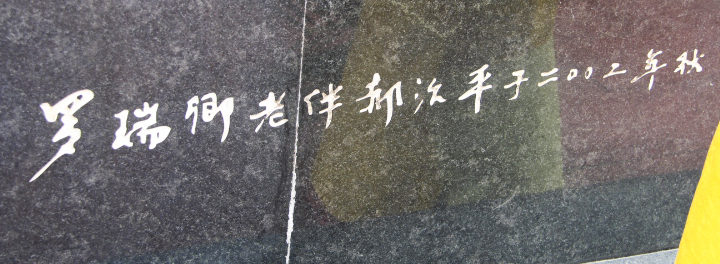 罗瑞卿老伴郝治平于二〇〇二年秋